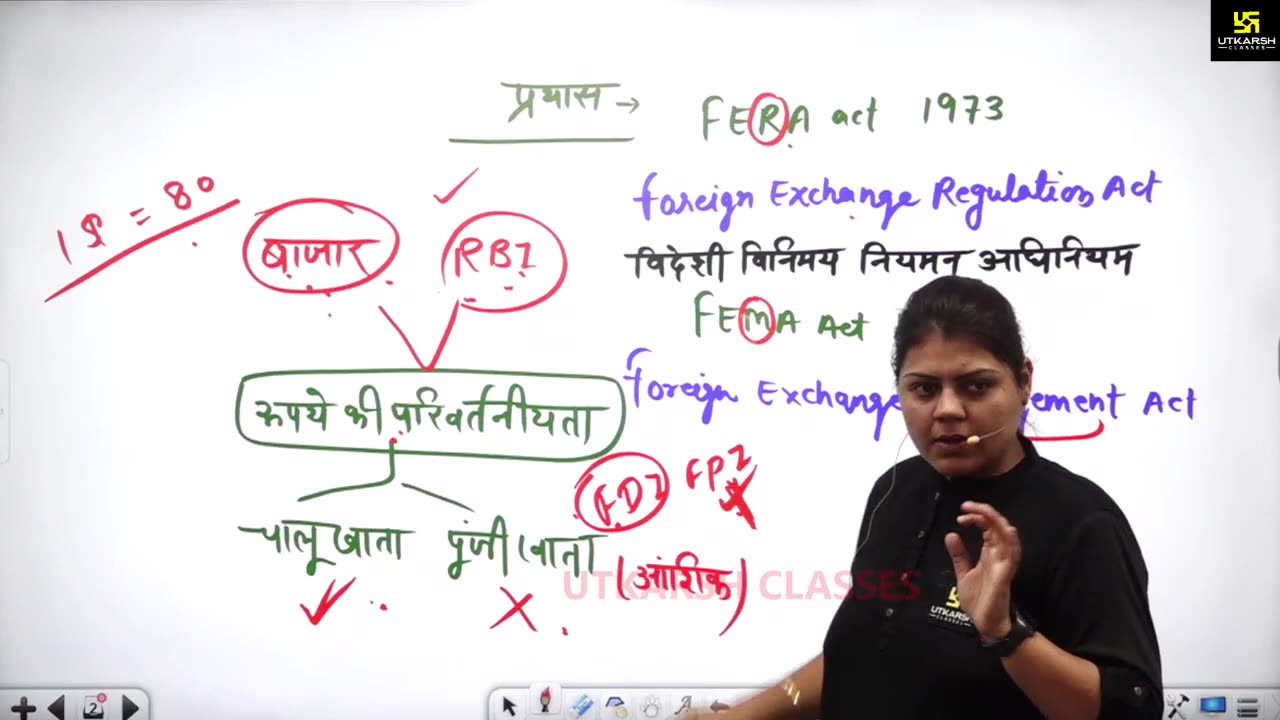 UTKARSH
CLASSES
प्रयास →
FERA act 1973
Foreign Exchange Regulation Act
1$ = 80
बाजार
RBI
विदेशी विनिमय नियमन अधिनियम
FEMA Act
रुपये की परिवर्तनीयता
Foreign Exchange gement Act
FDI FPI
चालू खाता पूंजी खाता
(आंशिक)
UTKARSH CLASSES
UTKARSH
CLASSES
2